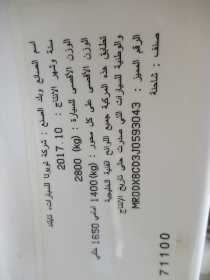 اسم الصانع وبلد الصنع : شركة تويوتا للسيارات، تايلاند
سنة وشهر الإنتاج : 2017.10
الوزن الأقصى للسيارة : (kg) 2800
الوزن الأقصى على كل محور : (kg) 1400 أمامي 1650 خلفي
تطابق هذه المركبة جميع اللوائح الفنية الخليجية
والوطنية للسيارات التي صدرت حتى تاريخ الإنتاج
الرقم المميز : MR0DX8CD3J0593043
صنف : شاحنة
71100